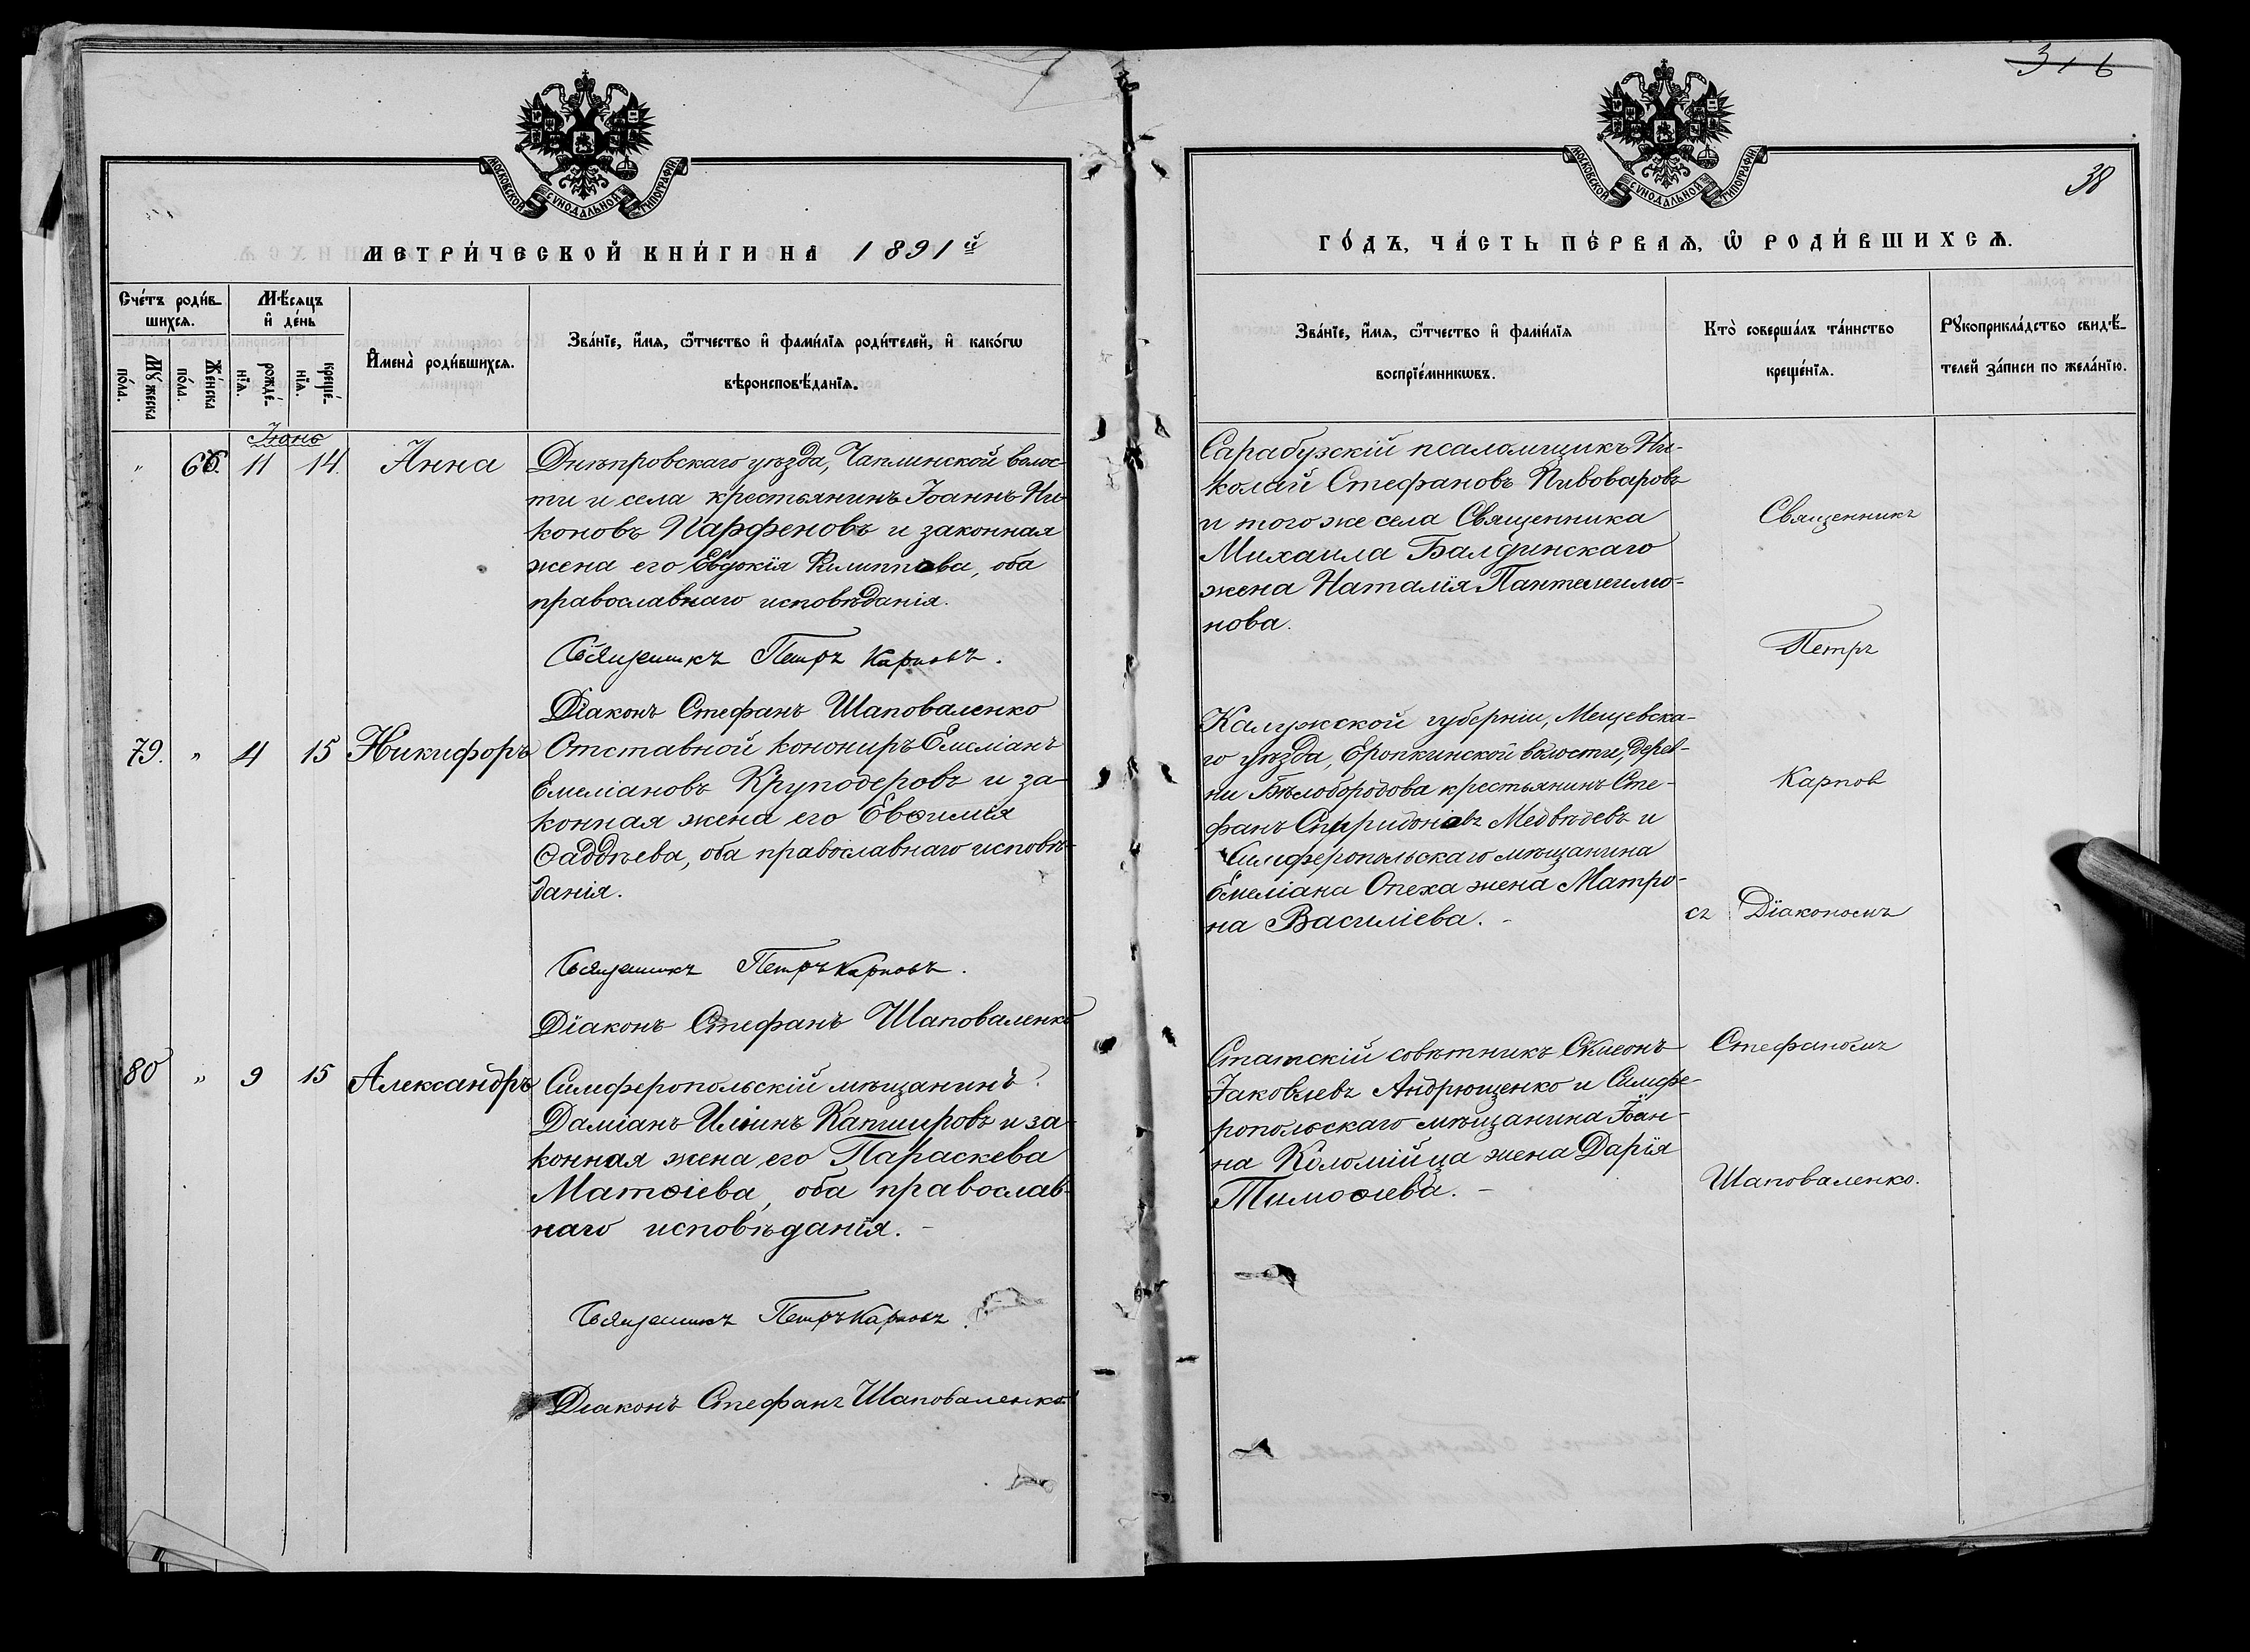 316
38
МОСКОВСКОЙ СѴНОДАЛЬНОЙ ТИПОГРАФІИ
МОСКОВСКОЙ СѴНОДАЛЬНОЙ ТИПОГРАФІИ
МЕТРИ́ЧЕСКОЙ КНИ́ГИ НА 1891й
ГО́ДЪ, ЧА́СТЬ ПЕ́РВАѦ, Ѡ҆ РОДИ́ВШИХСѦ.
Сче́тъ роди́в-
шихсѧ.
Мꙋ́жеска по́ла.
Же́нска по́ла.
Мѣ́сѧцъ
и҆ де́нь
рожде́-нїѧ.
креще́-нїѧ.
И҆мена̀ роди́вшихсѧ.
Зва́нїе, и҆́мѧ, ѻ҆́тчество и҆ фами́лїѧ роди́телей, и҆ како́гѡ
вѣроисповѣ́данїѧ.
Зва́нїе, и҆́мѧ, ѻ҆́тчество и҆ фами́лїѧ
воспрїе́мникѡвъ.
Кто̀ соверша́лъ та́инство
креще́нїѧ.
Рꙋкоприкла́дство свидѣ́-
телей за́писи по жела́нїю.
Іюнь
" 66. 11 14. Анна
Днѣпровскаго уѣзда, Чаплинской волос-
ти и села крестьянинъ Іоаннъ Ни-
коновъ Парфеновъ и законная
жена его Евдокія Филиппова, оба
православнаго исповѣданія.
Священникъ Петръ Карповъ.
Діаконъ Стефанъ Шаповаленко
Сарабузскій псаломщикъ Ни-
колай Стефановъ Пивоваровъ
и того же села Священника
Михаила Балдинскаго
жена Наталія Пантелеимо-
нова.
79. " 4 15 Никифоръ
Отставной конониръ Емеліанъ
Емеліановъ Круподеровъ и за-
конная жена его Евѳимія
Ѳаддѣева, оба православнаго исповѣ-
данія.
Священникъ Петръ Карповъ.
Діаконъ Стефанъ Шаповаленко
Калужской губерніи, Мещевска-
го уѣзда, Еропкинской волости, дерев-
ни Бѣлобородова крестьянинъ Сте-
фанъ Спиридоновъ Медвѣдевъ и
Симферопольскаго мѣщанина
Емеліана Опеха жена Матро-
на Василіева. -
80 " 9 15 Александръ
Симферопольскій мѣщанинъ
Даміанъ Иліинъ Капшировъ и за-
конная жена его Параскева
Матѳіева, оба православ-
наго исповѣданія. -
Священникъ Петръ Карповъ.
Діаконъ Стефанъ Шаповаленко.
Статскій совѣтникъ Симеонъ
Іаковлевъ Андрющенко и Симфе-
ропольскаго мѣщанина Іоан-
на Коломійца жена Дарія
Тимоѳіева. -
Священникъ
Петръ
Карпов
съ Діакономъ
Стефаномъ
Шаповаленко.